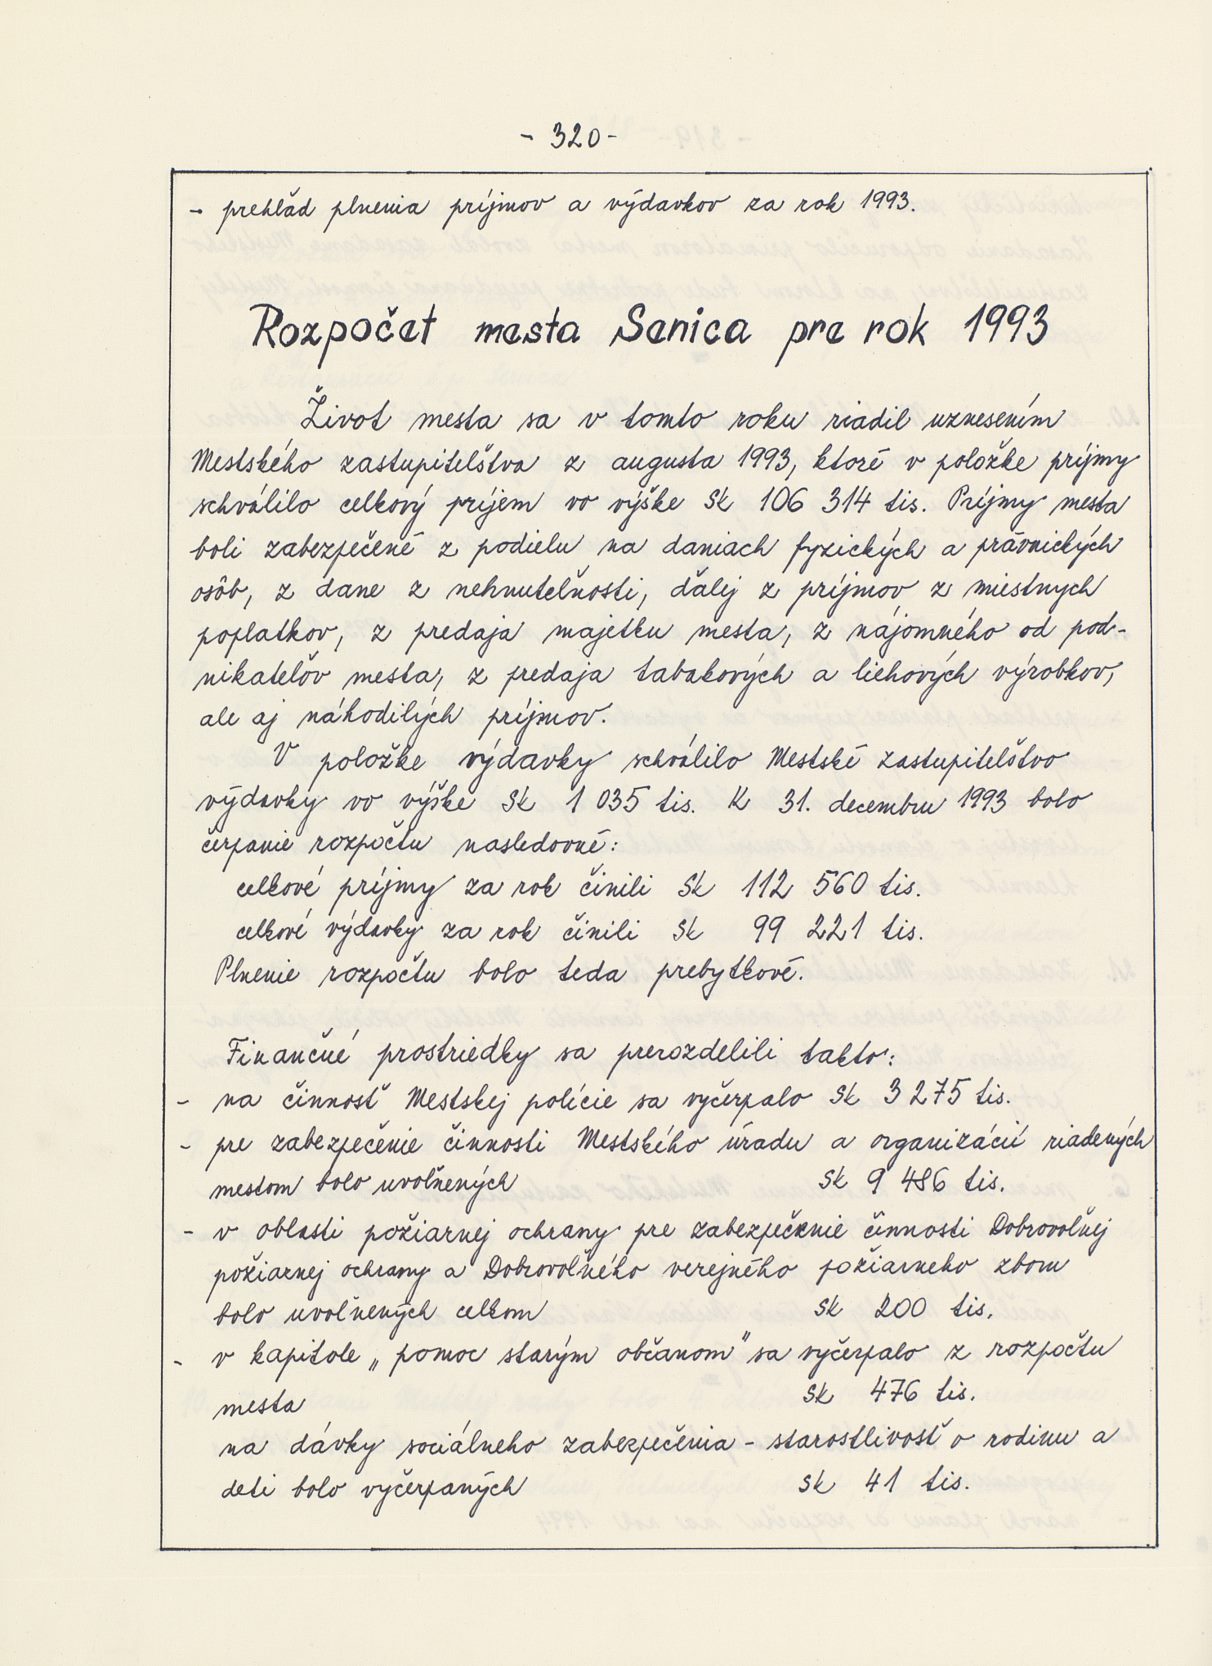 - 320 -
- prehľad plnenia príjmov a výdavkov za rok 1993.
Rozpočet mesta Senica pre rok 1993
Život mesta sa v tomto roku riadil uznesením
Mestského zastupiteľstva z augusta 1993, ktoré v položke príjmy
schválilo celkový príjem vo výške Sk 106 314 tis. Príjmy mesta
boli zabezpečené z podielu na daniach fyzických a právnických
osôb, z dane z nehnuteľnosti, ďalej z príjmov z miestnych
poplatkov, z predaja majetku mesta, z nájomného od pod-
nikateľov mesta, z predaja tabakových a liehových výrobkov,
ale aj náhodilých príjmov.
V položke výdavky schválilo Mestské zastupiteľstvo
výdavky vo výške Sk 1 035 tis. K 31. decembru 1993 bolo
čerpanie rozpočtu nasledovné:
celkové príjmy za rok činili Sk 112 560 tis.
celkové výdavky za rok činili Sk 99 221 tis.
Plnenie rozpočtu bolo teda prebytkové.
Finančné prostriedky sa prerozdelili takto:
- na činnosť Mestskej polície sa vyčerpalo Sk 3 275 tis.
- pre zabezpečenie činnosti Mestského úradu a organizácií riadených
mestom bolo uvoľnených Sk 9 486 tis.
- v oblasti požiarnej ochrany pre zabezpečenie činnosti Dobrovoľnej
požiarnej ochrany a Dobrovoľného verejného požiarneho zboru
bolo uvoľnených celkom Sk 200 tis.
- v kapitole „pomoc starým občanom" sa vyčerpalo z rozpočtu
mesta Sk 476 tis.
na dávky sociálneho zabezpečenia - starostlivosť o rodinu a
deti bolo vyčerpaných Sk 41 tis.